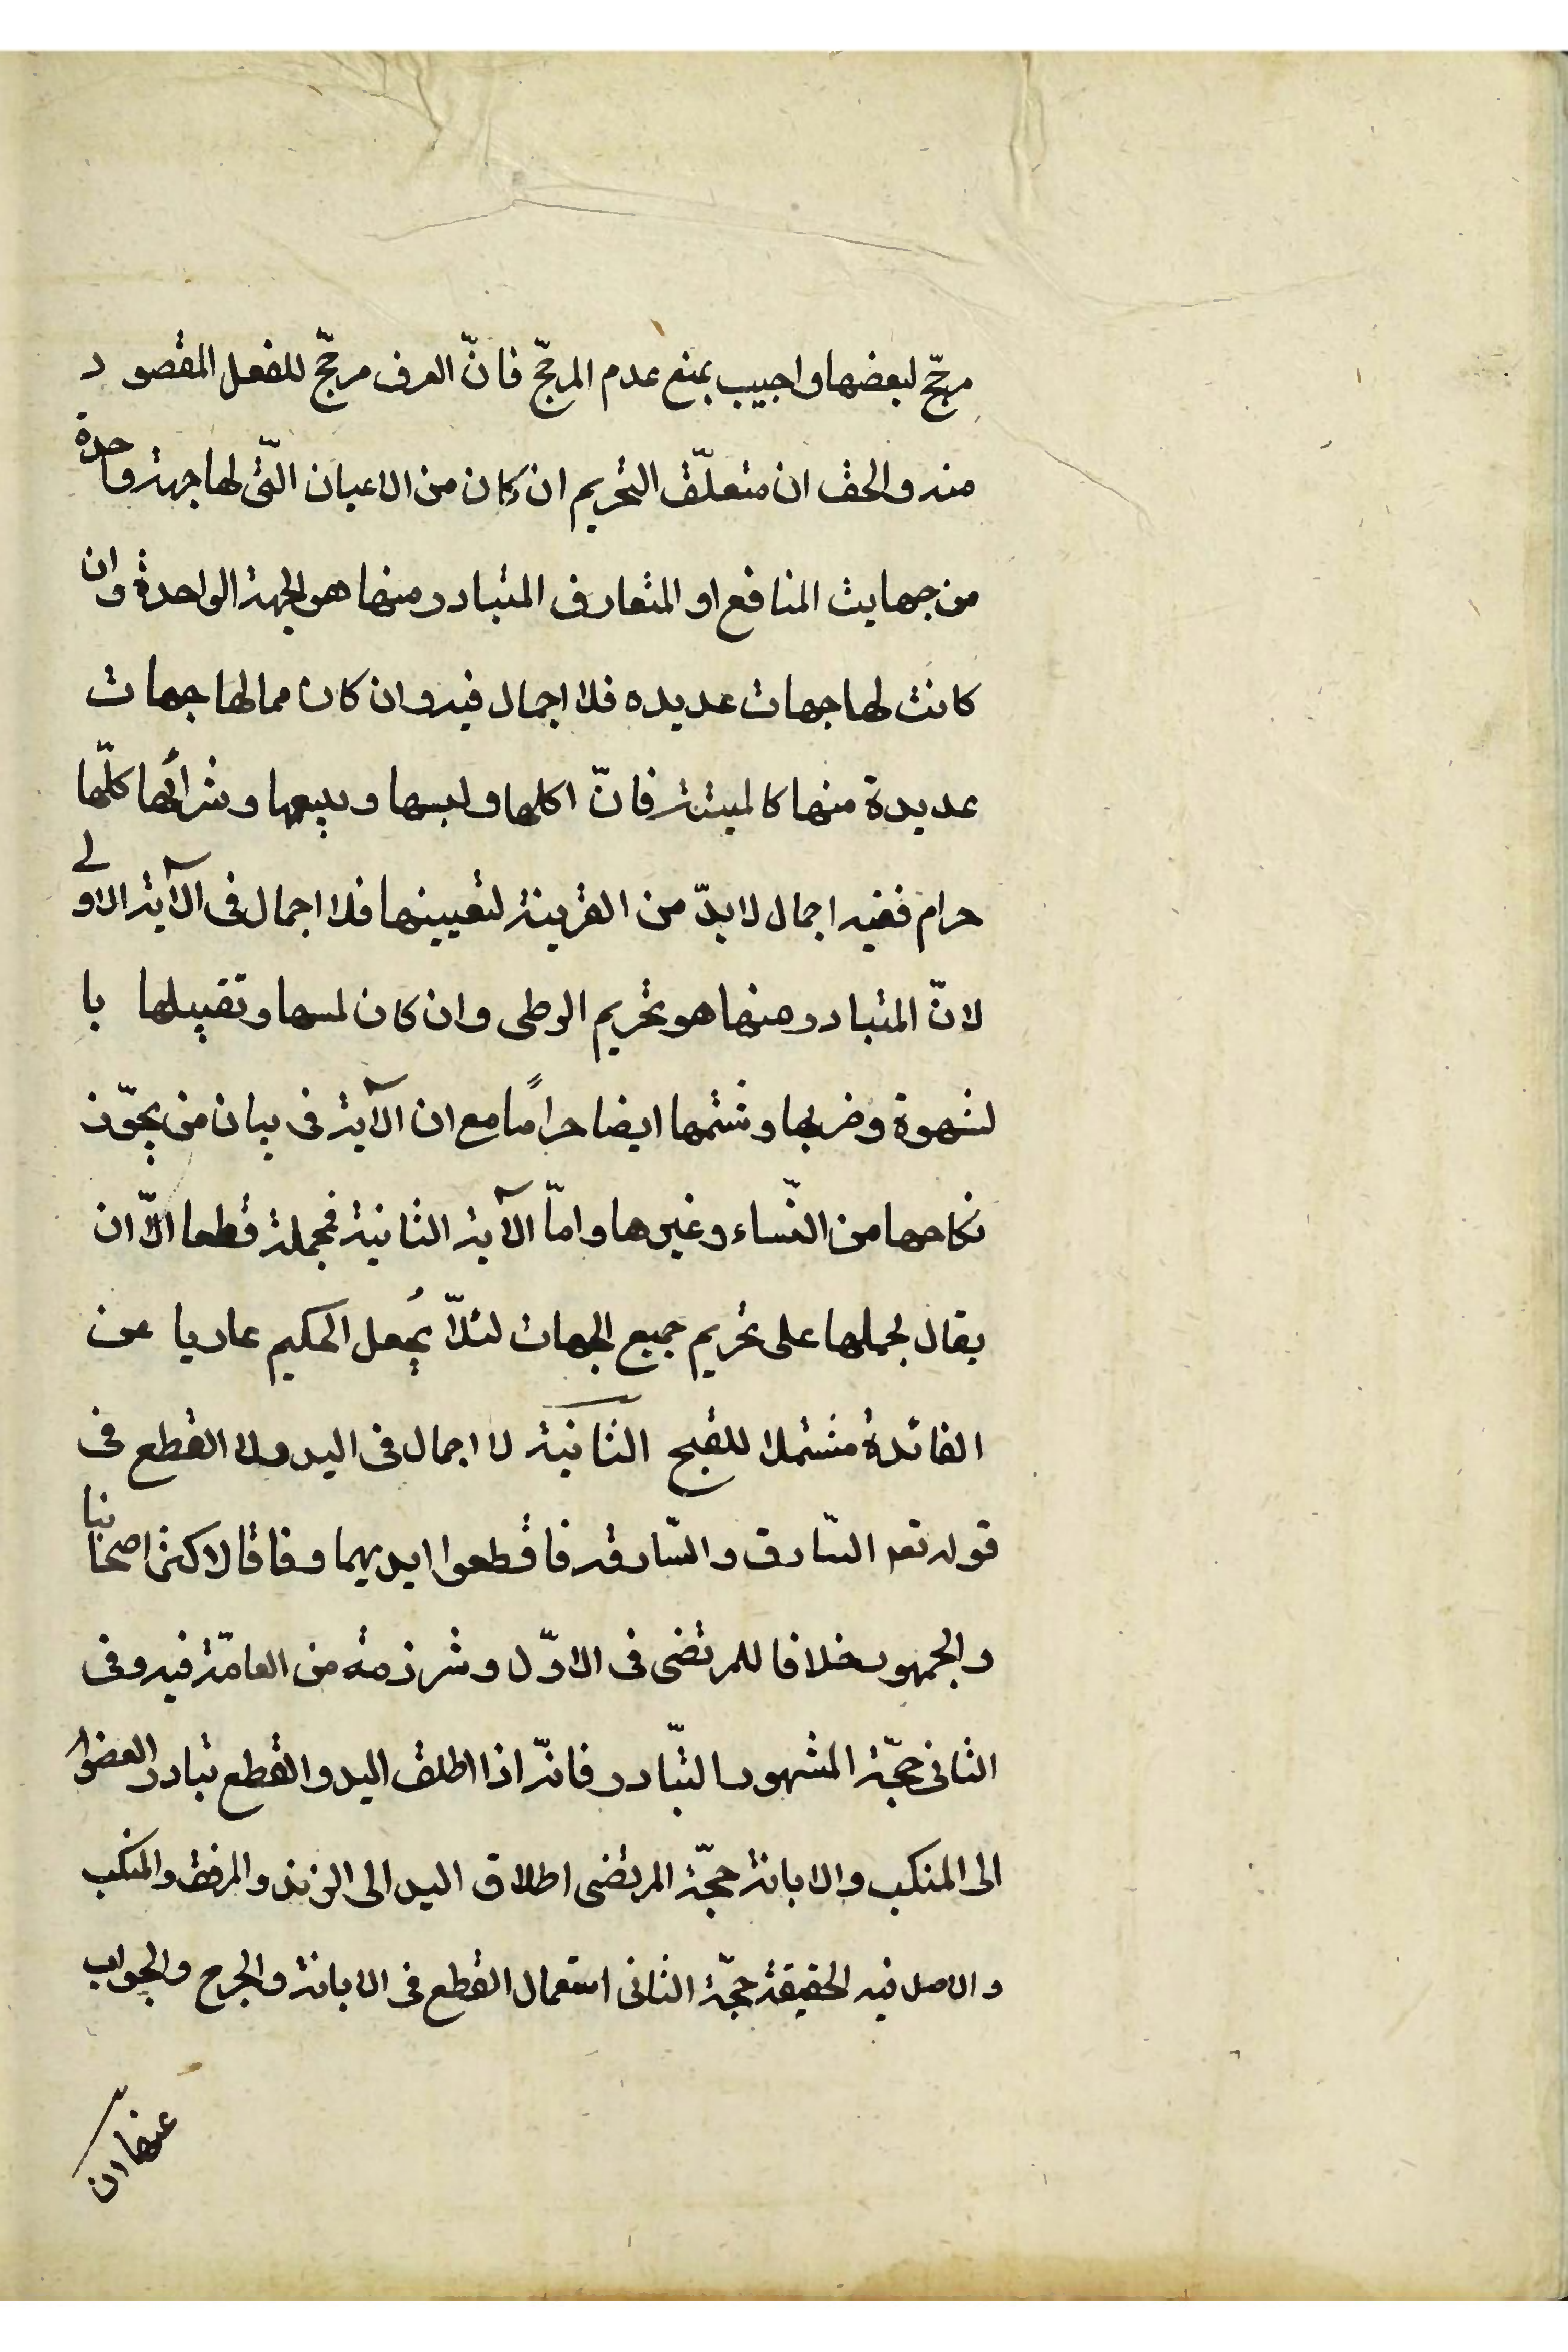 مرجّح لبعضها واجيب بمنع عدم المرجّح فانّ العرف مرجّح للفعل المقصود
منه والحق ان متعلّق التحريم ان كان من الاعيان الّتى لها جهة واحدة
من جهايت المنافع او المتعارف المتبادر منها هو الجهة الواحدة وان
كانت لها جهات عديده فلا اجمال فيه وان كان مما لها جهات
عديدة منها كالميتة فانّ اكلها ولبسها وبيعها وشرائها كلّها
حرام ففيه اجمال لا بدّ من القرينة لتعيينها فلا اجمال فى الآية الاولى
لانّ المتبادر منها هو تحريم الوطى وان كان لمسها وتقبيلها با
لشهوة وضربها وشتمها ايضا حرامًا مع ان الآية فى بيان من يجوّز
نكاحها من النّساء وغيرها وامّا الآية الثانية فمجملة قطعا الّا ان
يقال لحملها على تحريم جميع الجهات لئلّا يُجعل الحكيم عاريا عن
الفائدة مشتملا للقبح الثانية لا اجمال فى اليد ولا القطع فى
قوله تعم السّارق والسّارقة فاقطعوا ايديهما وفاقا لاكثر اصحابنا
والجمهور خلافا للمرتضى فى الاوّل وشرذمه من العامّة فيه وفى
الثانى حجّة المشهور التّبادر فانّه اذا اطلق اليد والقطع تبادر العضو
الى المنكب والابانة حجّة المرتضى اطلاق اليد الى الزند والمرفق والمنكب
والاصل فيه الحقيقة حجّة الثانى استعمال القطع فى الابانة والجرح والجواب
عنها انّ